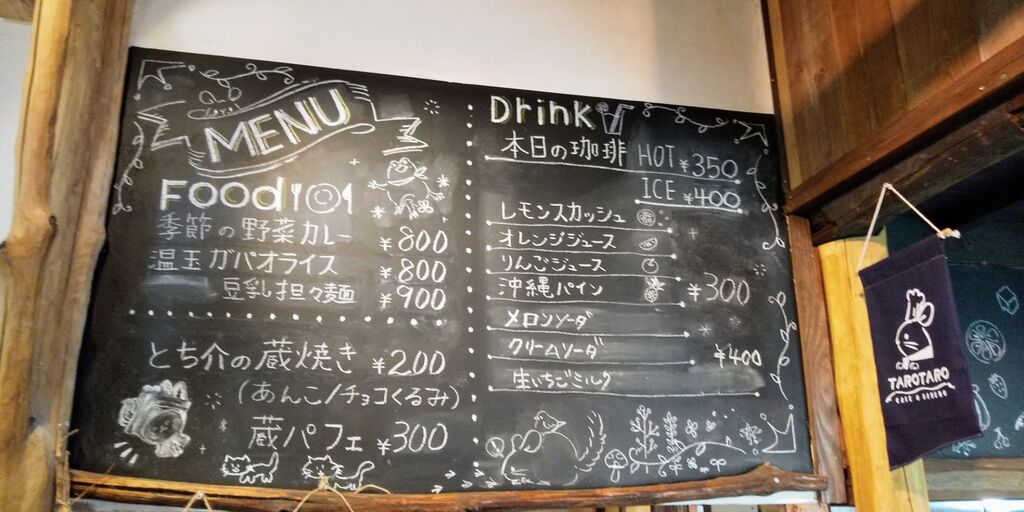 MENU
Food
季節の野菜カレー ¥800
温玉ガパオライス ¥800
豆乳担々麺 ¥900
とち介の蔵焼き ¥200
(あんこ/チョコくるみ)
蔵パフェ ¥300
Drink
本日の珈琲 HOT ¥350
ICE ¥400
レモンスカッシュ
オレンジジュース
りんごジュース
沖縄パイン ¥300
メロンソーダ
クリームソーダ ¥400
生いちごミルク
TAROTARO